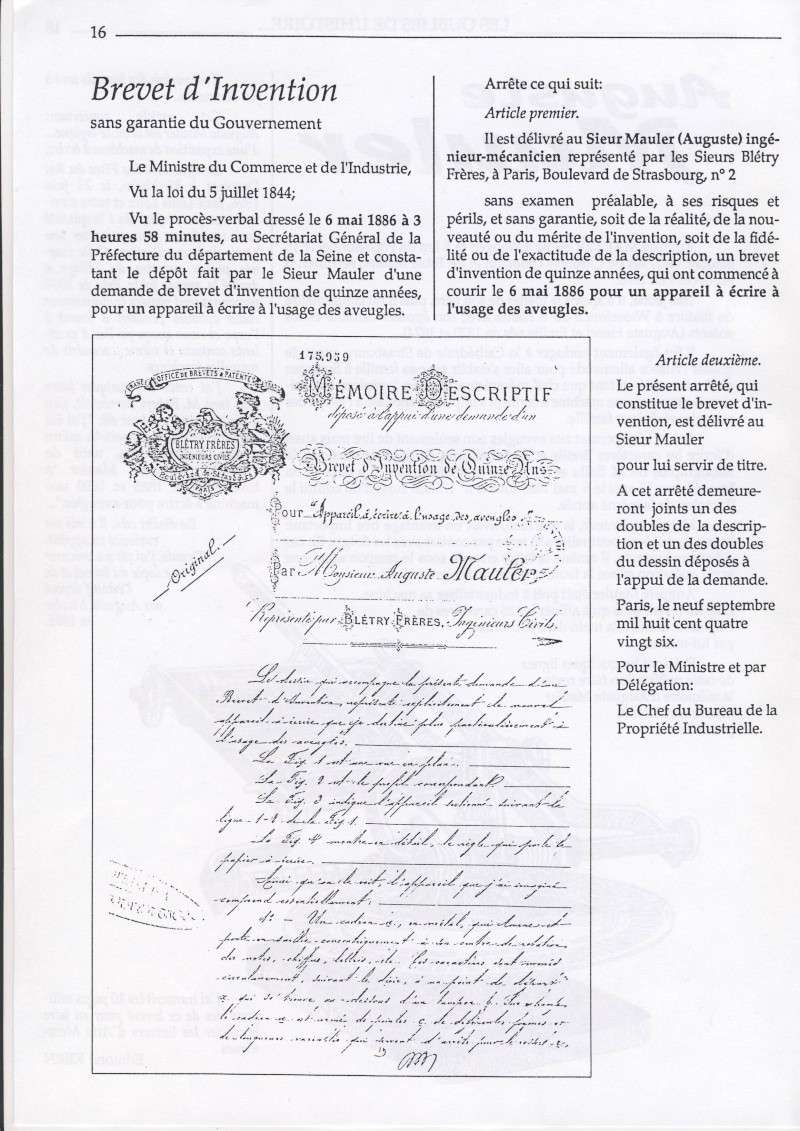 16
Brevet d'Invention
sans garantie du Gouvernement
Le Ministre du Commerce et de l'Industrie,
Vu la loi du 5 juillet 1844;
Vu le procès-verbal dressé le 6 mai 1886 à 3
heures 58 minutes, au Secrétariat Général de la
Préfecture du département de la Seine et consta-
tant le dépôt fait par le Sieur Mauler d'une
demande de brevet d'invention de quinze années,
pour un appareil à écrire à l'usage des aveugles.
Arrête ce qui suit:
Article premier.
Il est délivré au Sieur Mauler (Auguste) ingé-
nieur-mécanicien représenté par les Sieurs Blétry
Frères, à Paris, Boulevard de Strasbourg, n° 2
sans examen préalable, à ses risques et
périls, et sans garantie, soit de la réalité, de la nou-
veauté ou du mérite de l'invention, soit de la fidé-
lité ou de l'exactitude de la description, un brevet
d'invention de quinze années, qui ont commencé à
courir le 6 mai 1886 pour un appareil à écrire à
l'usage des aveugles.
175,939
OFFICE DE BREVETS & PATENTES
BLÉTRY FRÈRES
INGÉNIEURS CIVILS
PARIS
MÉMOIRE DESCRIPTIF
déposé à l'appui d'une demande d'un
Brevet d'Invention de Quinze Ans
Pour "Appareil à écrire à l'usage des aveugles
Original.
Par Monsieur Auguste Mauler
Représenté par BLÉTRY FRÈRES, Ingénieurs Civils.
Le dessin qui accompagne la présente demande d'un
Brevet d'Invention, représente explicitement le nouvel
appareil à écrire que je destine plus particulièrement à
l'usage des aveugles.
La Fig. 1 est une vue en plan.
La Fig. 2 est le profil correspondant.
La Fig. 3 indique l'appareil sectionné suivant la
ligne 1-2 de la Fig. 1.
La Fig. 4 montre en détail, la règle qui porte le
papier à écrire.
Ainsi qu'on le voit, l'appareil que j'ai imaginé
comprend essentiellement:
1° - Un cadran a, en métal, qui
porte en saillie concentriquement à son centre de rotation
des notes, chiffres, lettres, etc. Ces caractères sont
circulairement, suivant le à un point de départ
x qui se trouve au-dessous d'un tampon b.
le cadran a est de c de différentes formes et
de longueurs variables qui servent d'arrêts pour le
Article deuxième.
Le présent arrêté, qui
constitue le brevet d'in-
vention, est délivré au
Sieur Mauler
pour lui servir de titre.
A cet arrêté demeure-
ront joints un des
doubles de la descrip-
tion et un des doubles
du dessin déposés à
l'appui de la demande.
Paris, le neuf septembre
mil huit cent quatre
vingt six.
Pour le Ministre et par
Délégation:
Le Chef du Bureau de la
Propriété Industrielle.